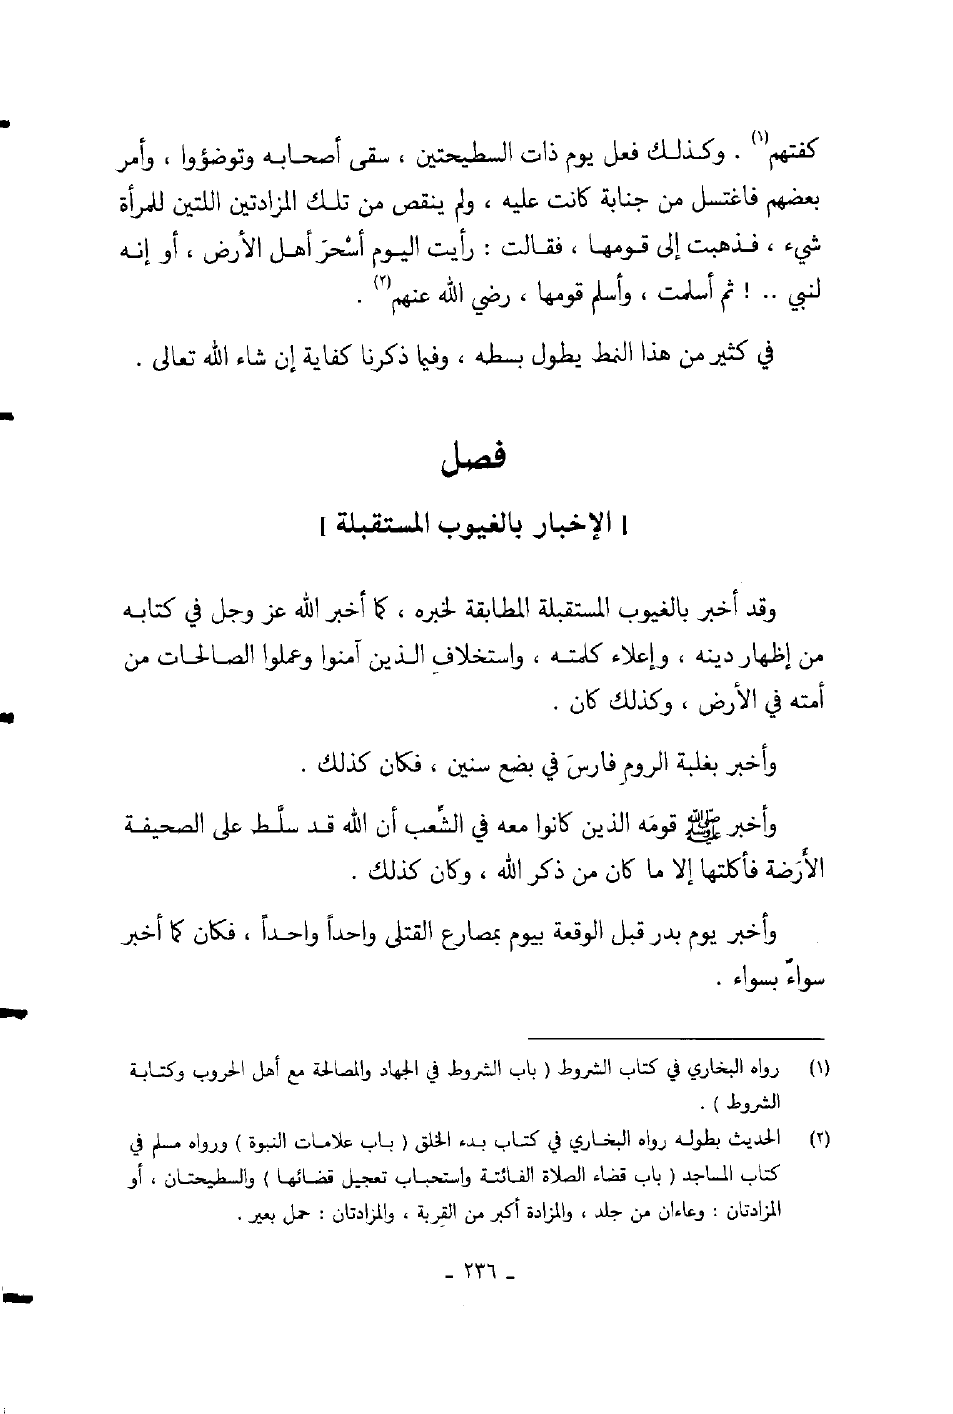 كفتهم(١) . وكذلك فعل يوم ذات السطيحتين ، سقى أصحابه وتوضؤوا ، وأمر
بعضهم فاغتسل من جنابة كانت عليه ، ولم ينقص من تلك المزادتين اللتين للمرأة
شيء ، فذهبت إلى قومها ، فقالت : رأيت اليوم أسْحَرَ أهل الأرض ، أو إنه
لنبي .. ! ثم أسلمت ، وأسلم قومها ، رضي الله عنهم(٢) .
في كثير من هذا النمط يطول بسطه ، وفيما ذكرنا كفاية إن شاء الله تعالى .
فصل
[ الإخبار بالغيوب المستقبلة ]
وقد أخبر بالغيوب المستقبلة المطابقة لخبره ، كما أخبر الله عز وجل في كتابه
من إظهار دينه ، وإعلاء كلمته ، واستخلافِ الذين آمنوا وعملوا الصالحات من
أمته في الأرض ، وكذلك كان .
وأخبر بغلبة الرومِ فارسَ في بضع سنين ، فكان كذلك .
وأخبر ﷺ قومَه الذين كانوا معه في الشِّعب أن الله قد سلَّط على الصحيفة
الأَرَضة فأكلتها إلا ما كان من ذكر الله ، وكان كذلك .
وأخبر يوم بدر قبل الوقعة بيوم بمصارع القتلى واحداً واحداً ، فكان كما أخبر
سواءً بسواء .
(١) رواه البخاري في كتاب الشروط ( باب الشروط في الجهاد والمصالحة مع أهل الحروب وكتابة
الشروط ) .
(٢) الحديث بطوله رواه البخاري في كتاب بدء الخلق ( باب علامات النبوة ) ورواه مسلم في
كتاب المساجد ( باب قضاء الصلاة الفائتة واستحباب تعجيل قضائها ) والسطيحتان ، أو
المزادتان : وعاءان من جلد ، والمزادة أكبر من القربة ، والمزادتان : حمل بعير .
- ٢٣٦ -